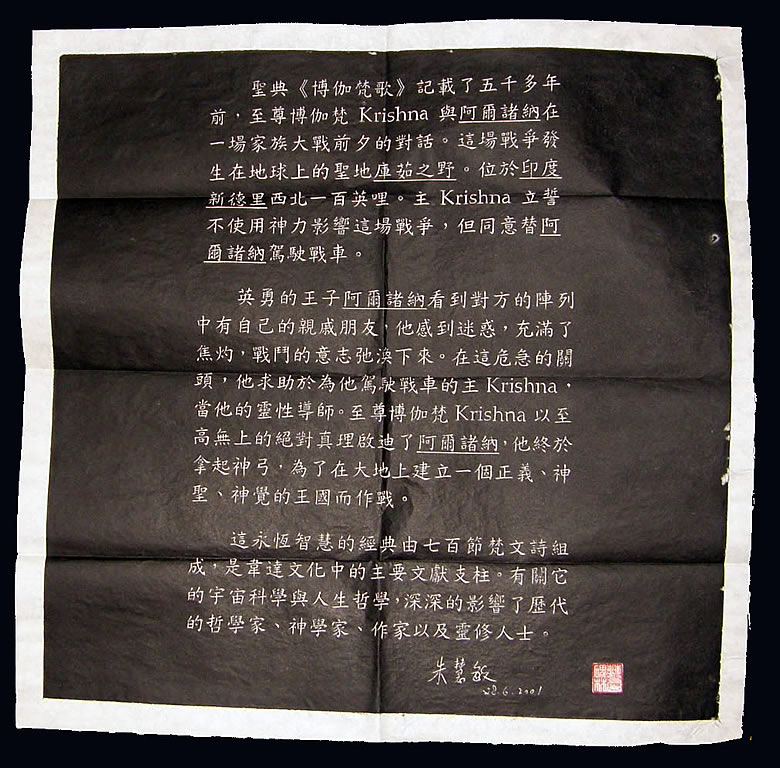 聖典《博伽梵歌》記載了五千多年
前，至尊博伽梵 Krishna 與阿爾諸納在
一場家族大戰前夕的對話。這場戰爭發
生在地球上的聖地庫茹之野。位於印度
新德里西北一百英哩。主 Krishna 立誓
不使用神力影響這場戰爭，但同意替阿
爾諸納駕駛戰車。
英勇的王子阿爾諸納看到對方的陣列
中有自己的親戚朋友，他感到迷惑，充滿了
焦灼，戰鬥的意志弛渙下來。在這危急的關
頭，他求助於為他駕駛戰車的主 Krishna，
當他的靈性導師。至尊博伽梵 Krishna 以至
高無上的絕對真理啟迪了阿爾諸納，他終於
拿起神弓，為了在大地上建立一個正義、神
聖、神覺的王國而作戰。
這永恆智慧的經典由七百節梵文詩組
成，是韋達文化中的主要文獻支柱。有關它
的宇宙科學與人生哲學，深深的影響了歷代
的哲學家、神學家、作家以及靈修人士。
朱慧敏
28.6.2001